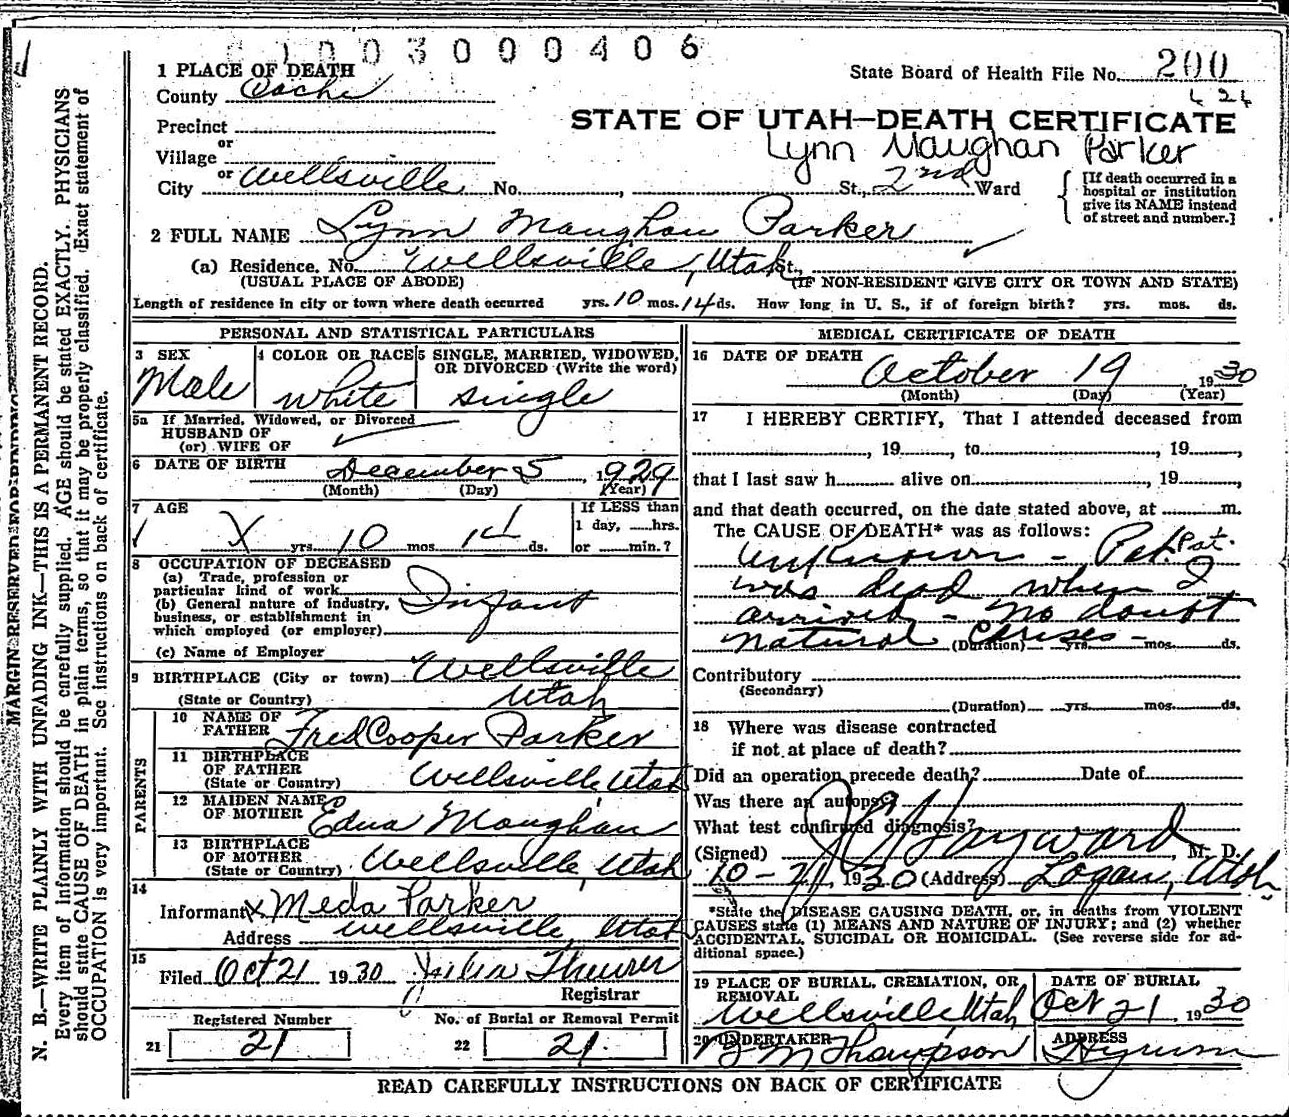 01003000406
1 PLACE OF DEATH
State Board of Health File No. 200
County Cache
424
Precinct
STATE OF UTAH—DEATH CERTIFICATE
or
Lynn Maughan Parker
Village
or
City Wellsville No. , St., 2nd Ward
[If death occurred in a
hospital or institution
give its NAME instead
of street and number.]
2 FULL NAME Lynn Maughan Parker
(a) Residence. No. Wellsville, Utah St.,
(USUAL PLACE OF ABODE) (IF NON-RESIDENT GIVE CITY OR TOWN AND STATE)
Length of residence in city or town where death occurred yrs. 10 mos. 14 ds. How long in U. S., if of foreign birth? yrs. mos. ds.
PERSONAL AND STATISTICAL PARTICULARS
3 SEX
Male
4 COLOR OR RACE
White
5 SINGLE, MARRIED, WIDOWED,
OR DIVORCED (Write the word)
Single
5a If Married, Widowed, or Divorced
HUSBAND OF
(or) WIFE OF
6 DATE OF BIRTH December 5, 1929
(Month) (Day) (Year)
7 AGE
X yrs. 10 mos. 14 ds.
If LESS than
1 day, hrs.
or min.?
8 OCCUPATION OF DECEASED
(a) Trade, profession or
particular kind of work
(b) General nature of industry,
business, or establishment in
which employed (or employer)
Infant
(c) Name of Employer
9 BIRTHPLACE (City or town) Wellsville
(State or Country) Utah
PARENTS
10 NAME OF
FATHER Fred Cooper Parker
11 BIRTHPLACE
OF FATHER
(State or Country) Wellsville, Utah
12 MAIDEN NAME
OF MOTHER Edna Maughan
13 BIRTHPLACE
OF MOTHER
(State or Country) Wellsville, Utah
14
Informant X Meda Parker
Address Wellsville, Utah
15
Filed Oct 21 1930 Julia Theurer
Registrar
Registered Number
21 21
No. of Burial or Removal Permit
22 21.
MEDICAL CERTIFICATE OF DEATH
16 DATE OF DEATH
October 19, 1930
(Month) (Day) (Year)
17 I HEREBY CERTIFY, That I attended deceased from
, 19 , to , 19 ,
that I last saw h alive on , 19 ,
and that death occurred, on the date stated above, at m.
The CAUSE OF DEATH* was as follows:
Unknown - Pat. Pat.
was dead when I
arrived - No doubt
natural causes -
(Duration) yrs. mos. ds.
Contributory
(Secondary)
(Duration) yrs. mos. ds.
18 Where was disease contracted
if not at place of death?
Did an operation precede death? Date of
Was there an autopsy?
What test confirmed diagnosis?
(Signed) Hayward, M. D.
10-21, 1930 (Address) Logan, Utah.
*State the DISEASE CAUSING DEATH, or, in deaths from VIOLENT
CAUSES state (1) MEANS AND NATURE OF INJURY; and (2) whether
ACCIDENTAL, SUICIDAL OR HOMICIDAL. (See reverse side for ad-
ditional space.)
19 PLACE OF BURIAL, CREMATION, OR
REMOVAL
Wellsville Utah
DATE OF BURIAL
Oct 21 1930
20 UNDERTAKER
B M Thompson
ADDRESS
Hyrum
READ CAREFULLY INSTRUCTIONS ON BACK OF CERTIFICATE
MARGIN RESERVED FOR BINDING
N. B.—WRITE PLAINLY WITH UNFADING INK—THIS IS A PERMANENT RECORD.
Every item of information should be carefully supplied. AGE should be stated EXACTLY. PHYSICIANS
should state CAUSE OF DEATH in plain terms, so that it may be properly classified. Exact statement of
OCCUPATION is very important. See instructions on back of certificate.